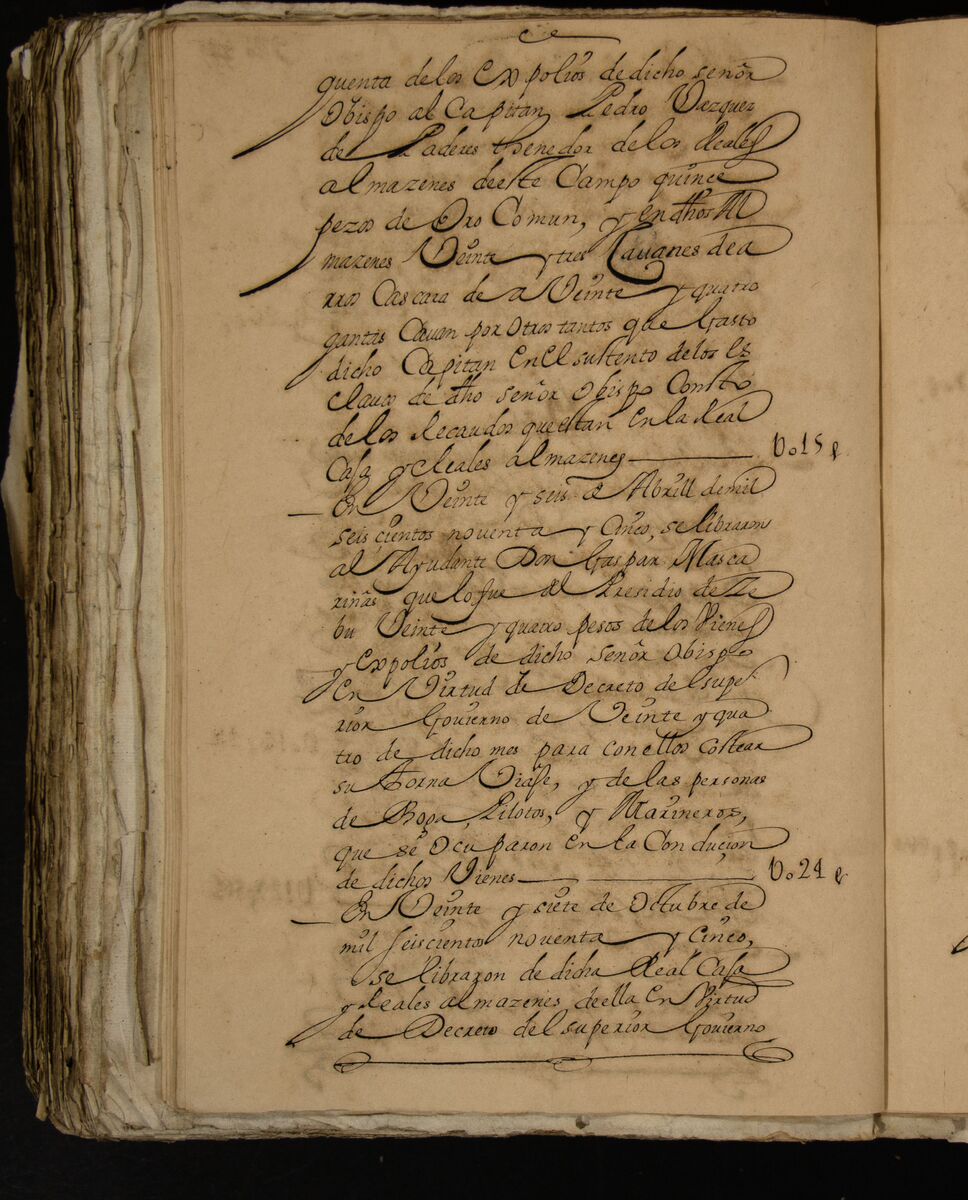 quenta de los Expolios de dicho señor
Obispo al Capitan Pedro Vazquez
de Paderes thenedor de los Reales
almazenes deeste Campo quince
pezos de Oro Comun, y en dhos Al
mazenes Veinte y tres Cauanes de a
rros Cascara de a Veinte y quatro
gantas Cauan por Otros tantos que Gasto
dicho Capitan en El sustento de los Es
clauos de dho señor Obispo Consto
de los Recaudos que estan en la Real
Casa y Reales almazenes Vo15 p
En Veinte y seis de Abrill de mil
seiscientos noventa y Cinco, se libraron
al Ayudante Don Gaspar Masca
riñas que lo fue del Presidio de Ze
bu Veinte y quatro pesos de los Vienes
y Expolios de dicho señor Obispo
En Virtud de Decreto del supe
rior Gouierno de Veinte y qua
tro de dicho mes para con ellos Costear
su torna Viaje, y de las personas
de Ropa, Pilotos, y Marineros,
que se Ocuparon en la Conducion
de dichos Vienes Vo24 p
En Veinte y siete de Octubre de
mil seiscientos noventa y Cinco,
se libraron de dicha Real Casa
y Reales almazenes de ella En Virtud
de Decreto del superior Gouierno